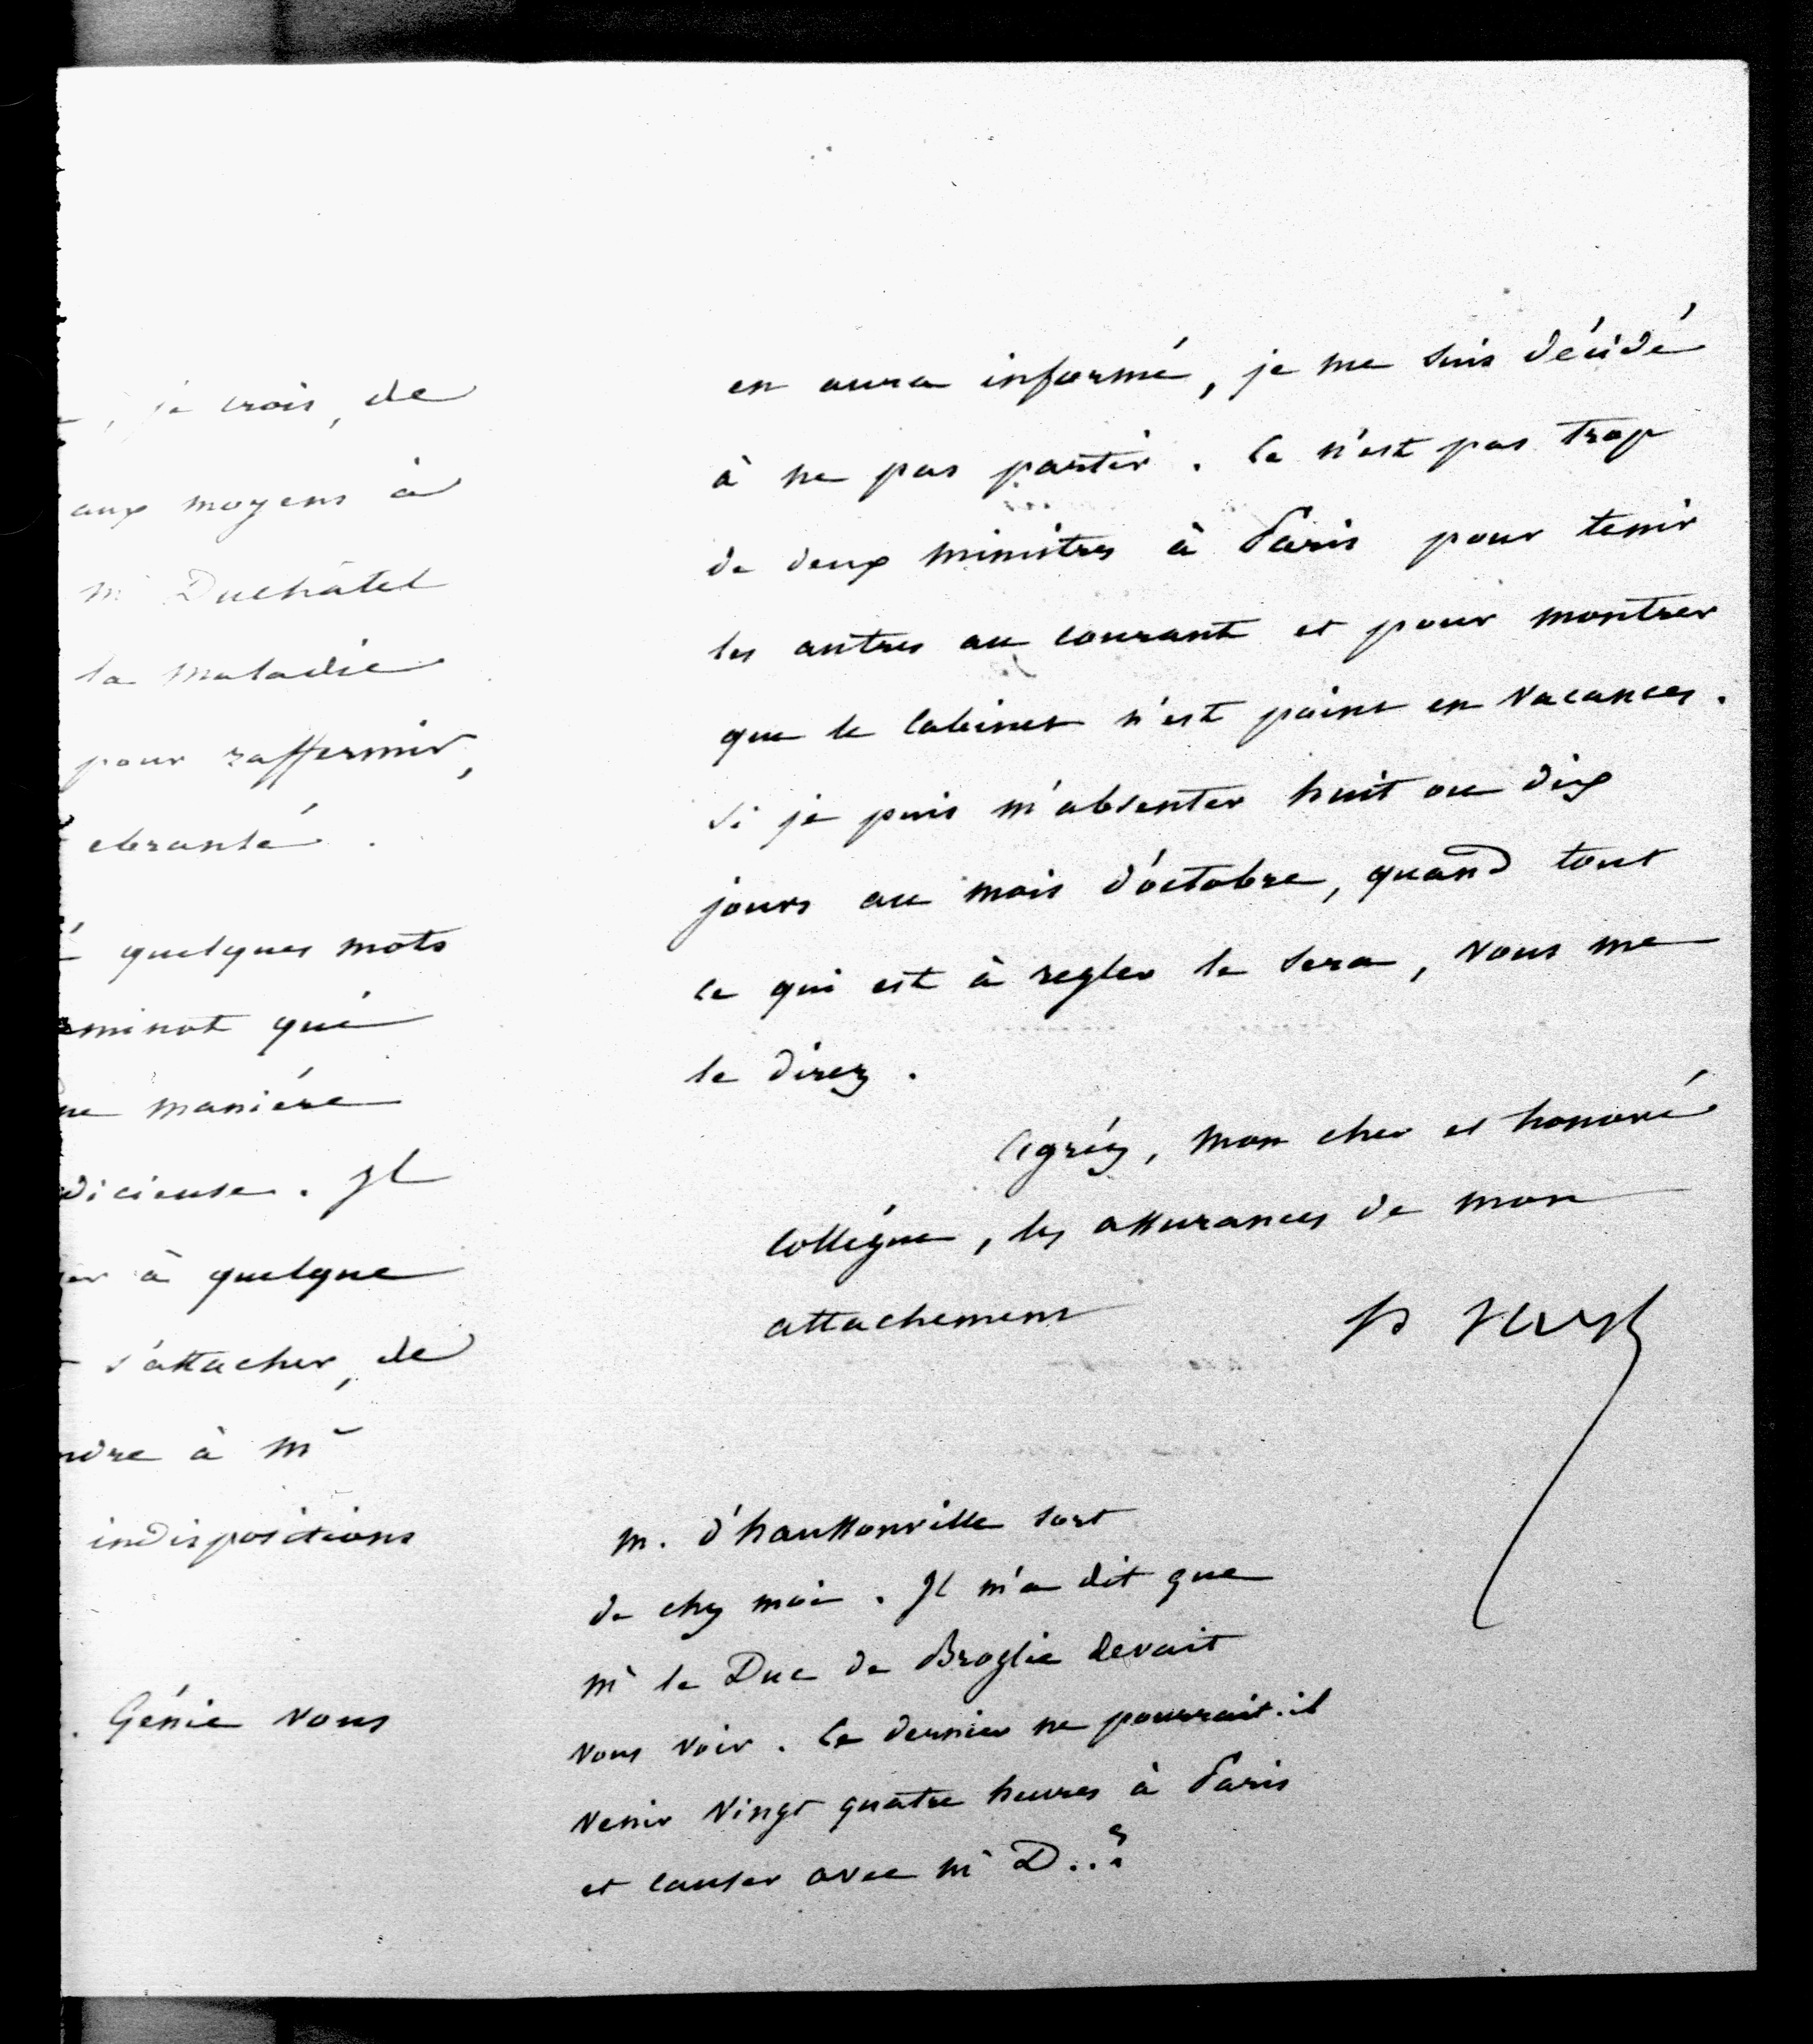 , je crois, de
aux moyens à
Mr Duchâtel
la maladie
pour raffermir,
ebranlé.
quelques mots
minot qui
ne manière
dicieuse. Il
er à quelque
s'attacher, de
ndre à Mr
indispositions
. Génie vous
en aura informé, je me suis décidé
à ne pas partir. Ce n'est pas trop
de deux ministres à Paris pour tenir
les autres au courant et pour montrer
que le Cabinet n'est point en vacances.
Si je puis m'absenter huit ou dix
jours au mois d'octobre, quand tout
ce qui est à regler le sera, vous me
le direz.
Agréez, mon cher et honoré
Collègue, les assurances de mon
attachement
M. d'haussonville sort
de chez moi. Il m'a dit que
Mr le Duc de Broglie devait
vous voir. Ce dernier ne pourrait-il
venir vingt quatre heures à Paris
et causer avec Mr D..?